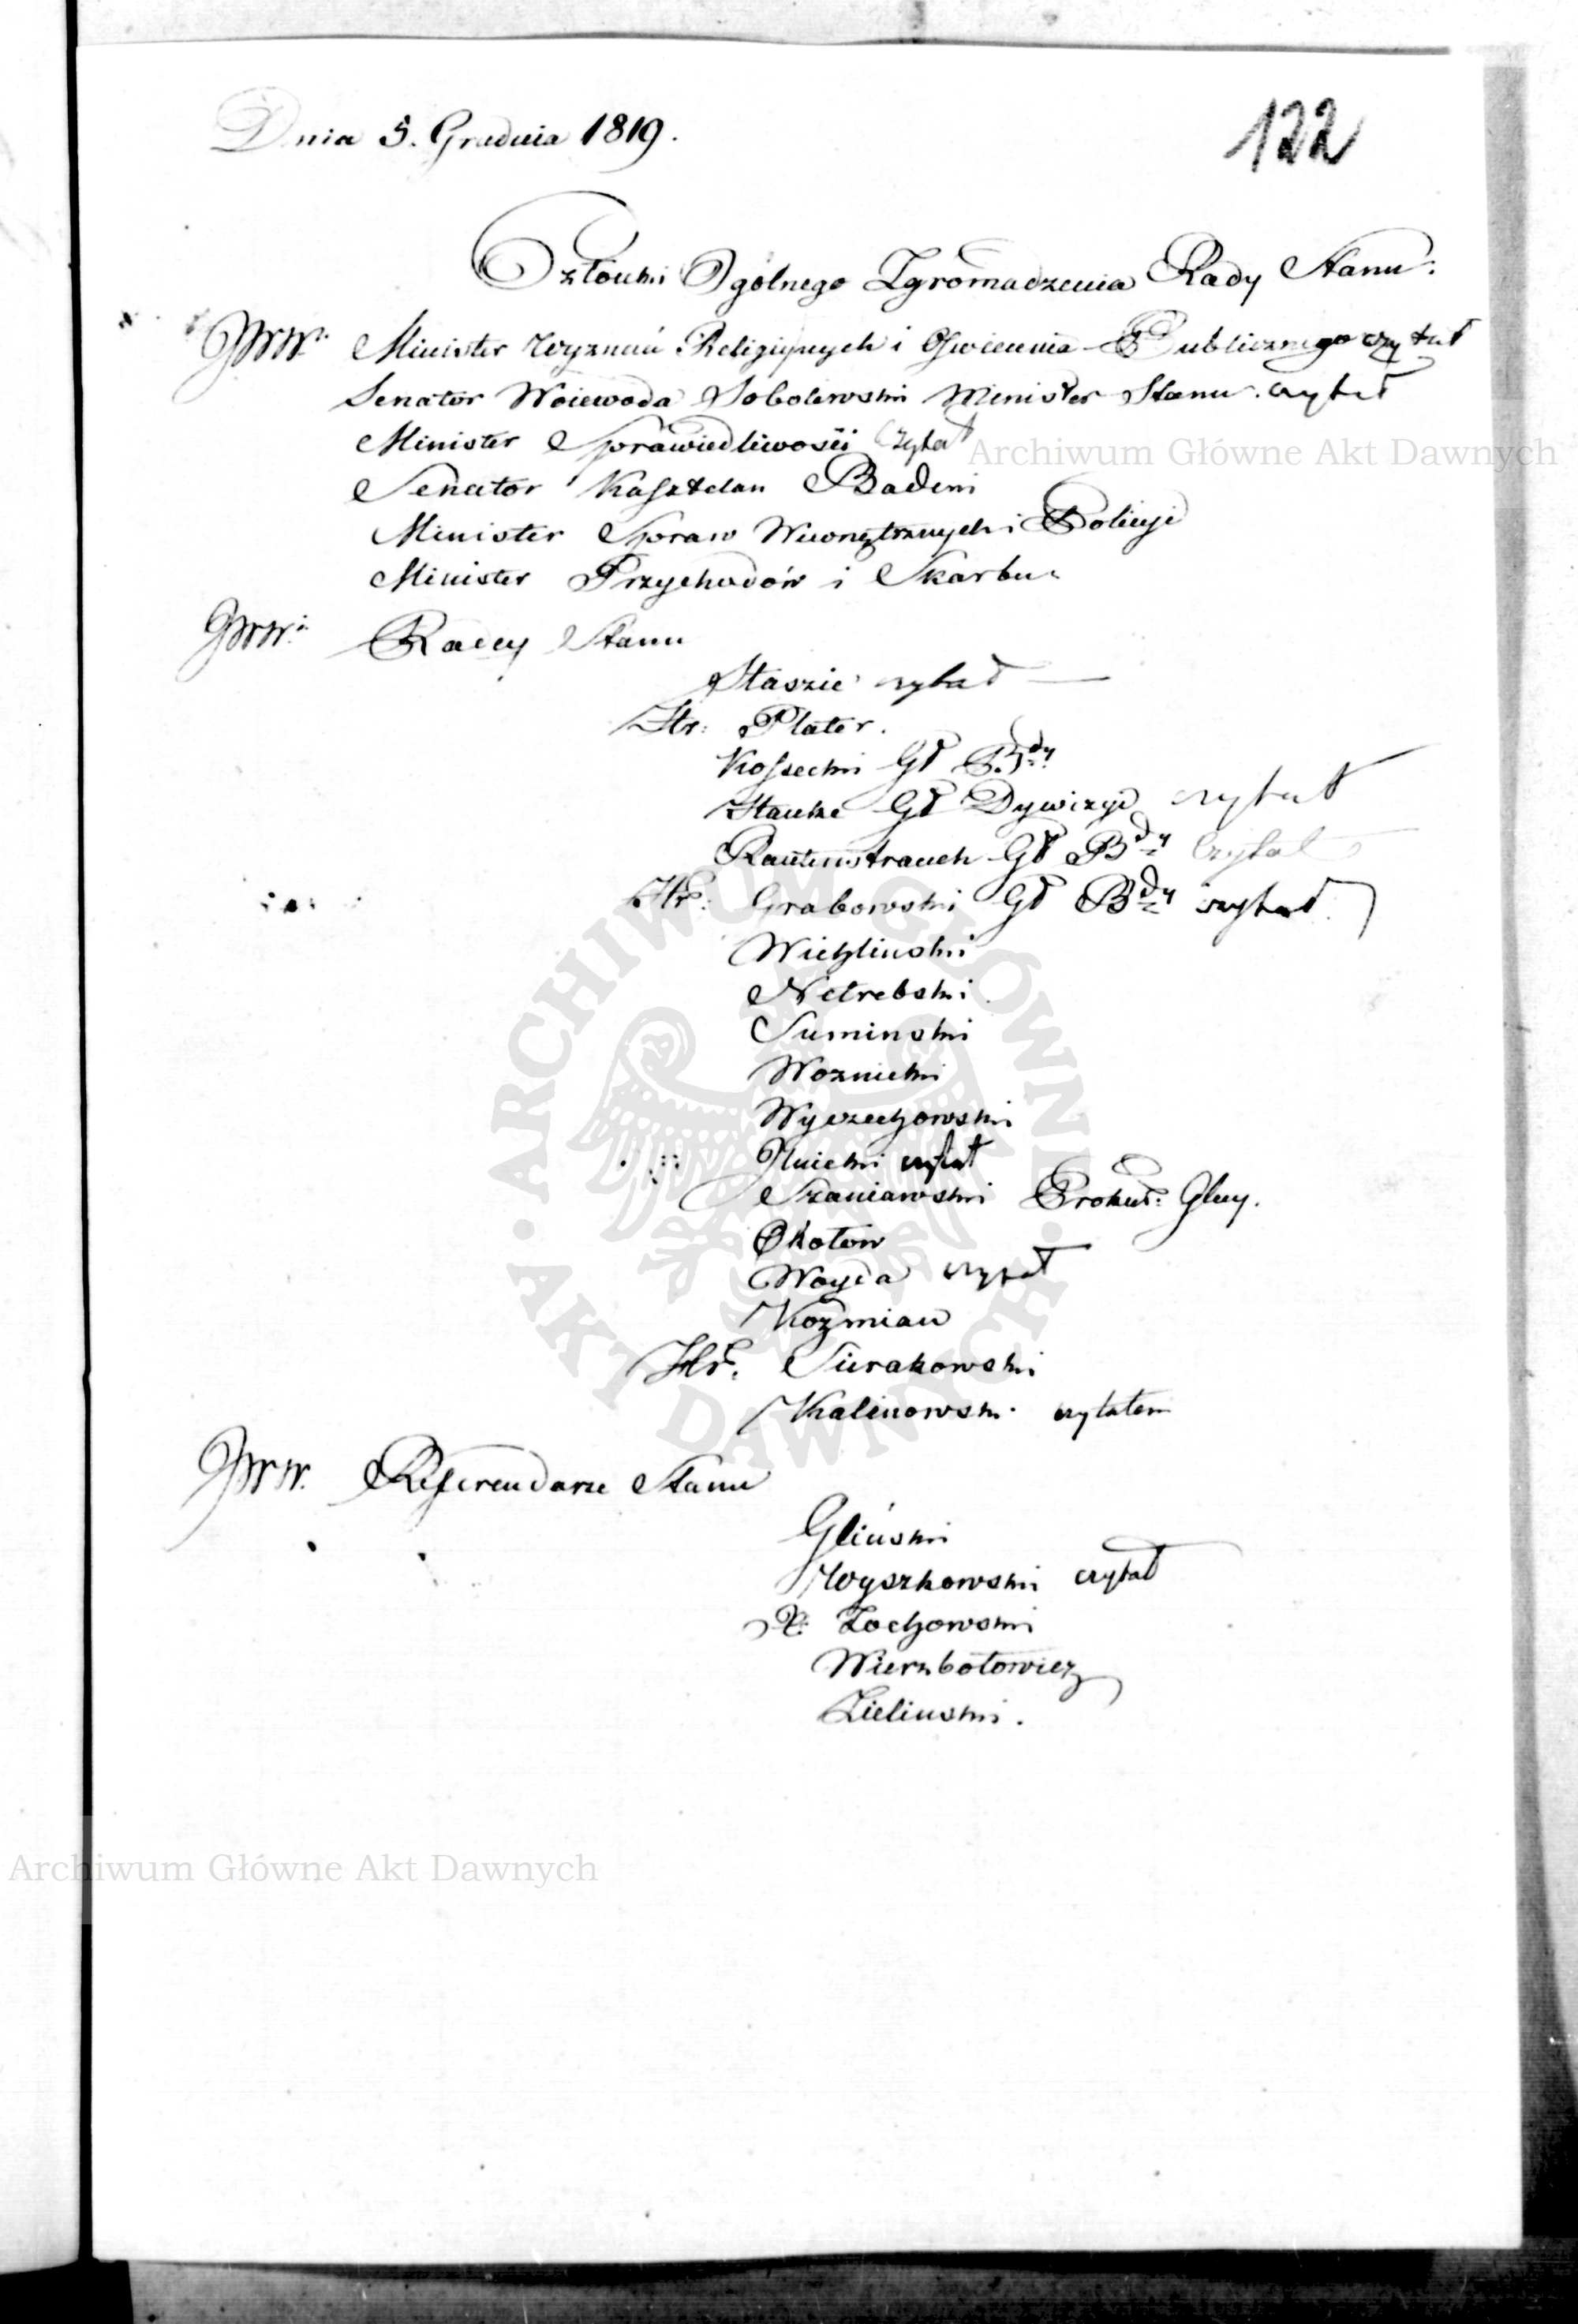 Dnia 5. Grudnia 1819.
122
Członki Ogólnego Zgromadzenia Rady Stanu.
JWW. Minister Wyznań Religijnych i Oświecenia Publicznego czytał
Senator Woiewoda Sobolewski Minister Stanu. czytał
Minister Sprawiedliwości Czytał
Archiwum Główne Akt Dawnych
Senator Kasztelan Badeni
Minister Spraw Wewnętrznych i Policyi
Minister Przychodów i Skarbu
JWW. Radcy Stanu
Staszic czytał
Hr: Plater.
Kossecki Gł B.dy
Hauke Gł Dywizyi czytał
Rautenstrauch Gł Bdy Czytał
Hr: Grabowski Gł Bdy czytał
Wichliński
Netrebski
Sumiński
Woznicki
Wyczechowski
Hnicki czytał
Szaniawski Prokur: Glny.
Okołow
Woyda czytał
Kozmian
Hr. Sierakowski
Kalinowski czytałem
JWW. Referendarze Stanu
Gliński
Wyszkowski czytał
X. Zochowski
Wierzbołowicz
Zieliński.
Archiwum Główne Akt Dawnych
ARCHIWUM GŁÓWNE AKT DAWNYCH